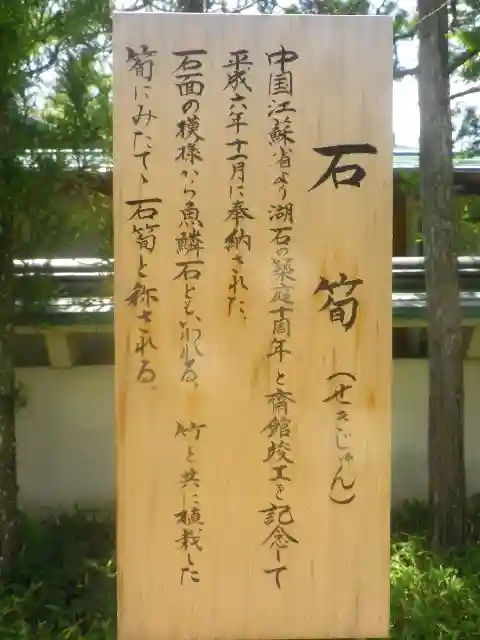 石筍(せきじゅん)
中国江蘇省より湖石の築庭十周年と齋館竣工を記念して
平成六年十一月に奉納された。
石面の模様から魚鱗石ともいわれる。竹と共に植栽した
筍にみたてゝ石筍と称される。